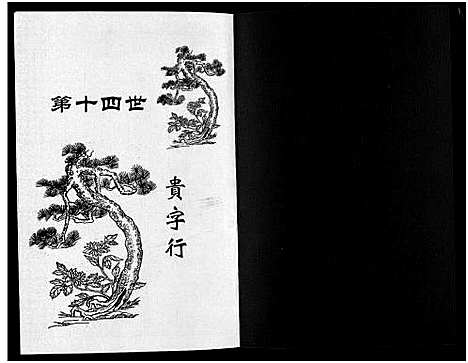 第十四世
貴字行